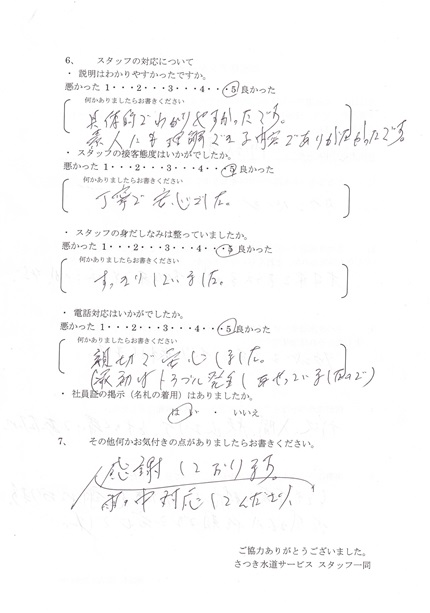 6、 スタッフの対応について
・ 説明はわかりやすかったですか。
悪かった 1・・・2・・・3・・・4・・・5 良かった
何かありましたらお書きください
具体的でわかりやすかったです。
素人にも理解できる内容でありがたかったです
・ スタッフの接客態度はいかがでしたか。
悪かった 1・・・2・・・3・・・4・・・5 良かった
何かありましたらお書きください
丁寧で安心でした。
・ スタッフの身だしなみは整っていましたか。
悪かった 1・・・2・・・3・・・4・・・5 良かった
何かありましたらお書きください
すっきりしていました。
・ 電話対応はいかがでしたか。
悪かった 1・・・2・・・3・・・4・・・5 良かった
何かありましたらお書きください
親切で安心しました。
トラブル発生しあせっていましたので)
・ 社員証の掲示（名札の着用）はありましたか。
はい ・ いいえ
7、 その他何かお気付きの点がありましたらお書きください。
感謝しております。
雨の中対応して
ご協力ありがとうございました。
さつき水道サービス スタッフ一同